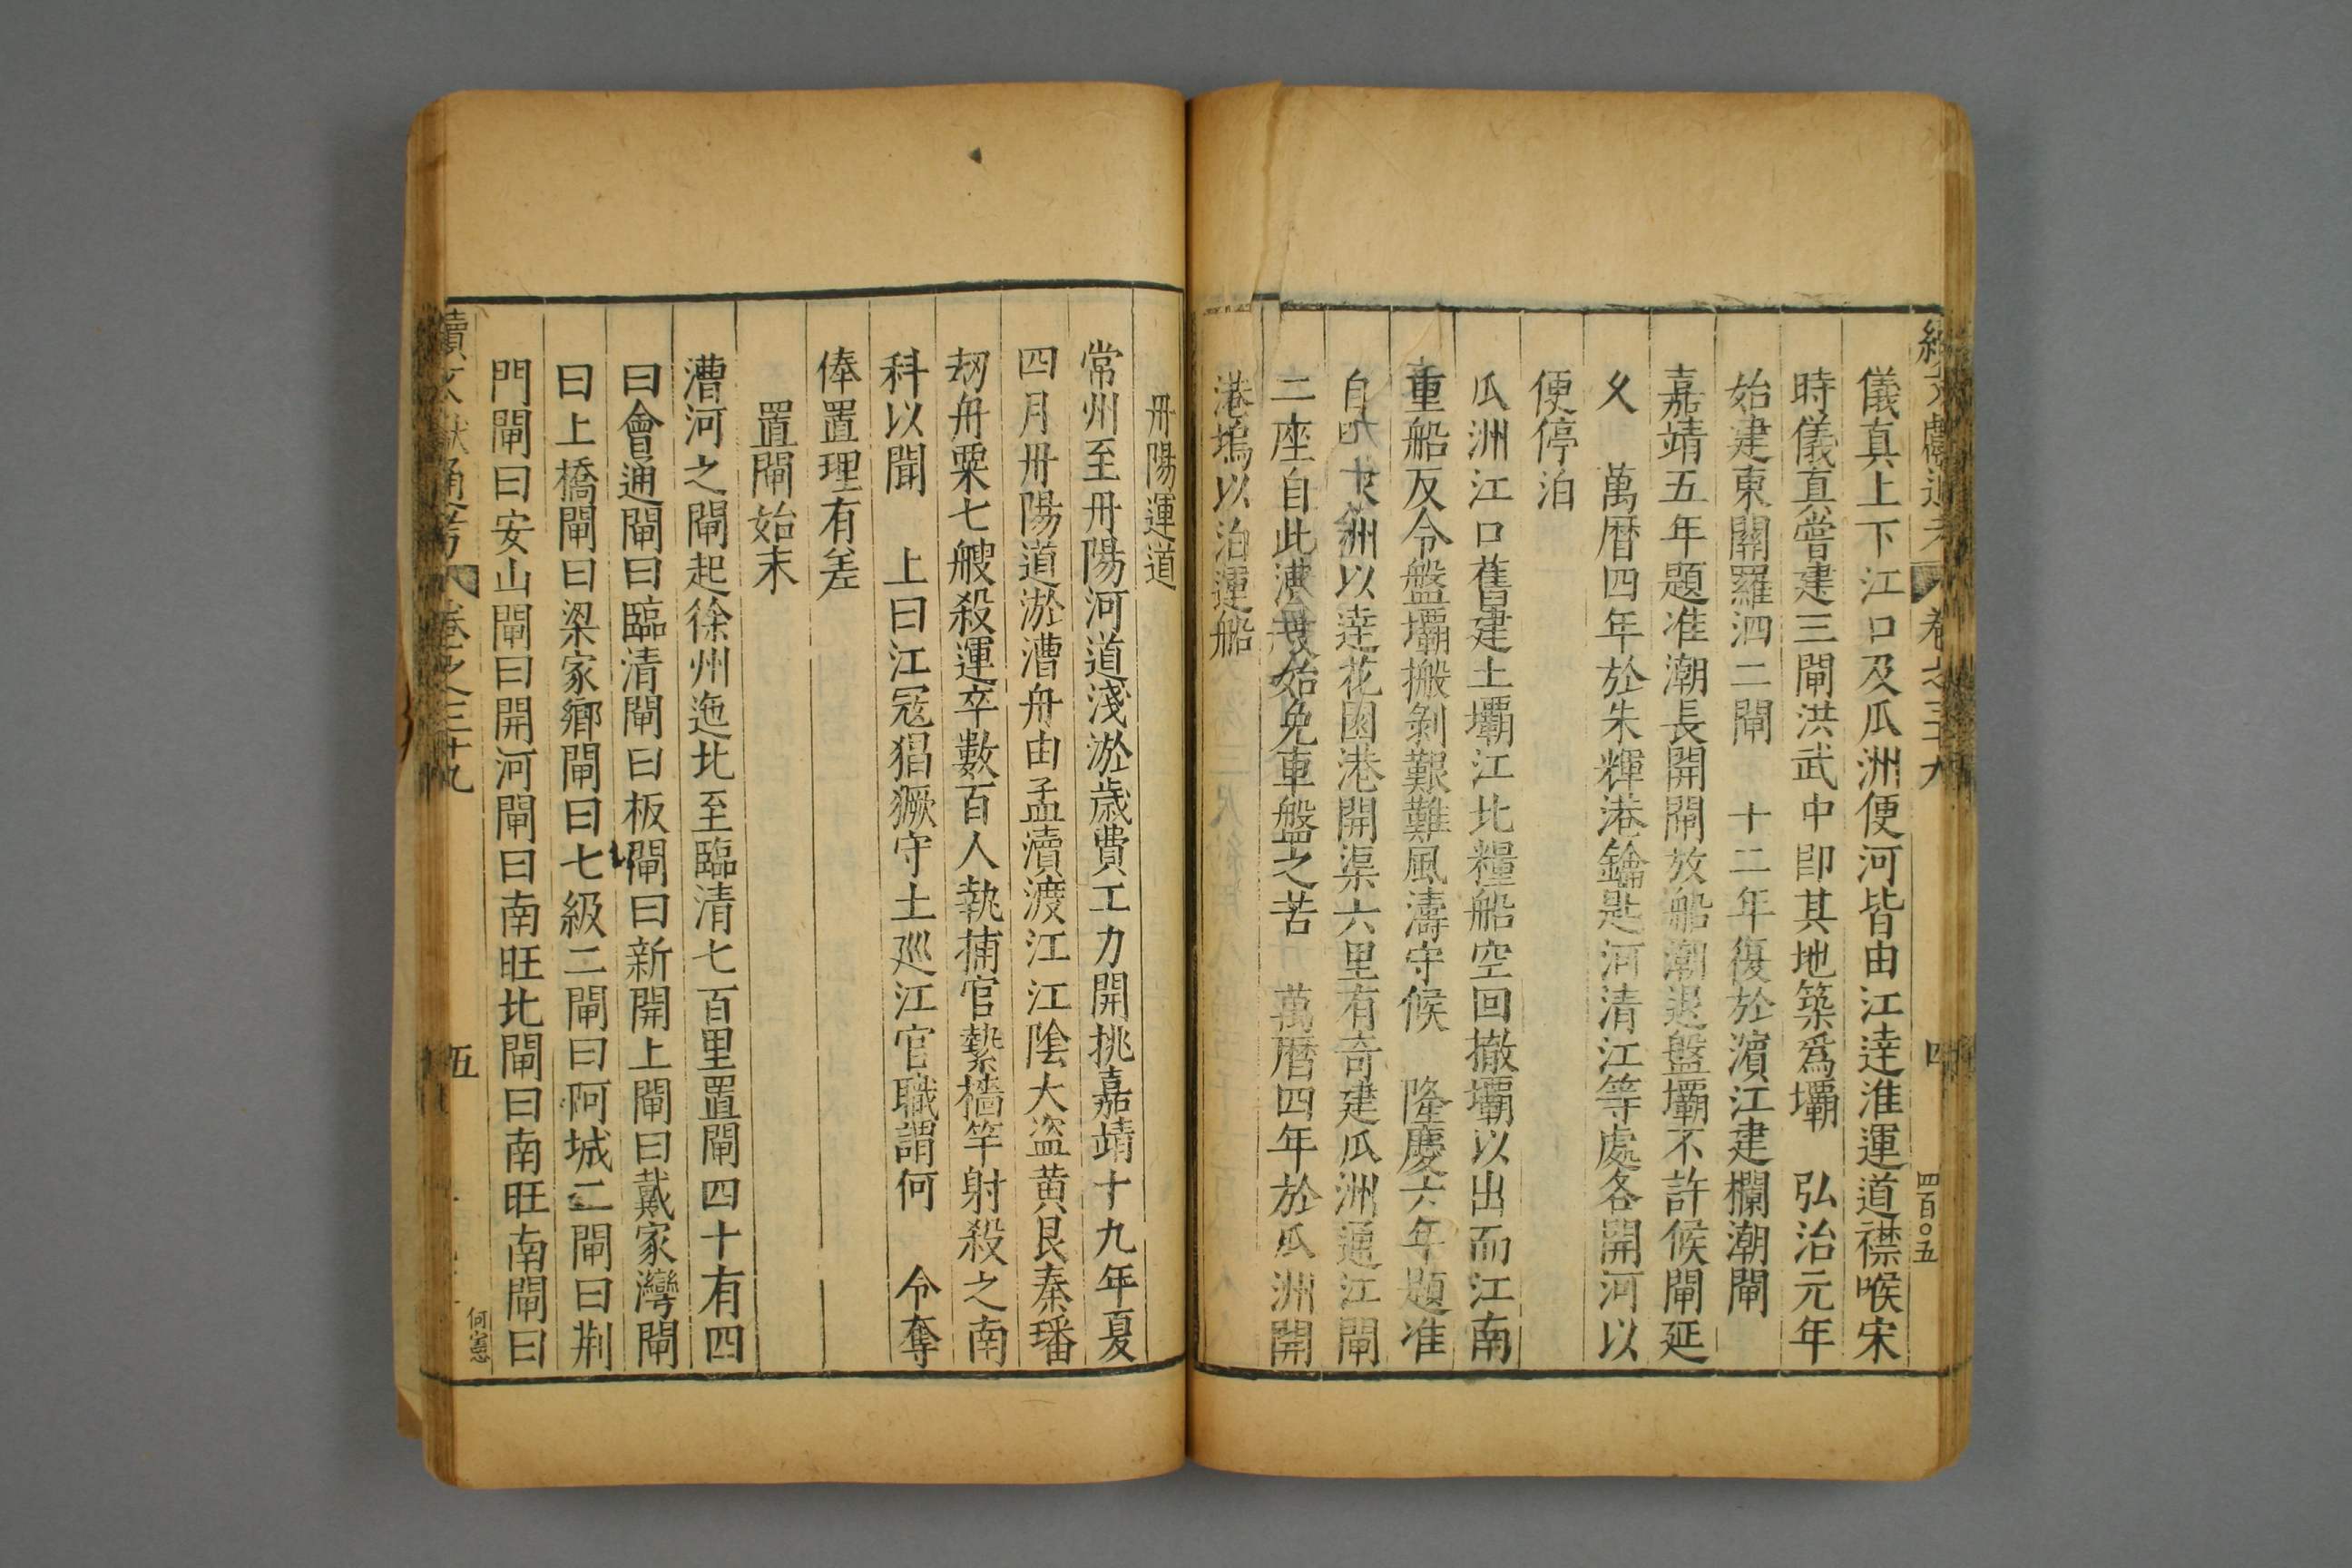 儀真上下江口及瓜洲便河皆由江達淮運道襟喉宋
時儀真嘗建三閘洪武中即其地築爲壩　弘治元年
始建東關羅泗二閘　十二年復於濵江建攔潮閘
嘉靖五年題准潮長開閘放船潮退盤壩不許候閘延
乆　萬曆四年於朱輝港鑰匙河清江等處各開河以
便停泊
瓜洲江口舊建土壩江北糧船空回撤壩以出而江南
重船反令盤壩搬剝艱難風濤守候　隆慶六年題准
自洲以達花園港開渠六里有奇建瓜洲通江閘
二座自此漕始免車盤之苦　萬曆四年於瓜洲開
港塢以泊運船
四
四百〇五
丹陽運道
常州至丹陽河道淺淤歲費工力開挑嘉靖十九年夏
四月丹陽道淤漕舟由孟瀆渡江江陰大盗黄艮秦璠
刼舟粟七艘殺運卒數百人執捕官縶檣竿射殺之南
科以聞　上曰江冦猖獗守土巡江官職謂何　令奪
俸置理有差
置閘始末
漕河之閘起徐州迤北至臨清七百里置閘四十有四
曰會通閘曰臨清閘曰板閘曰新開上閘曰戴家灣閘
曰上橋閘曰梁家鄉閘曰七級二閘曰阿城二閘曰荆
門閘曰安山閘曰開河閘曰南旺北閘曰南旺南閘曰
續文獻通考　卷之三十九
五
何憲